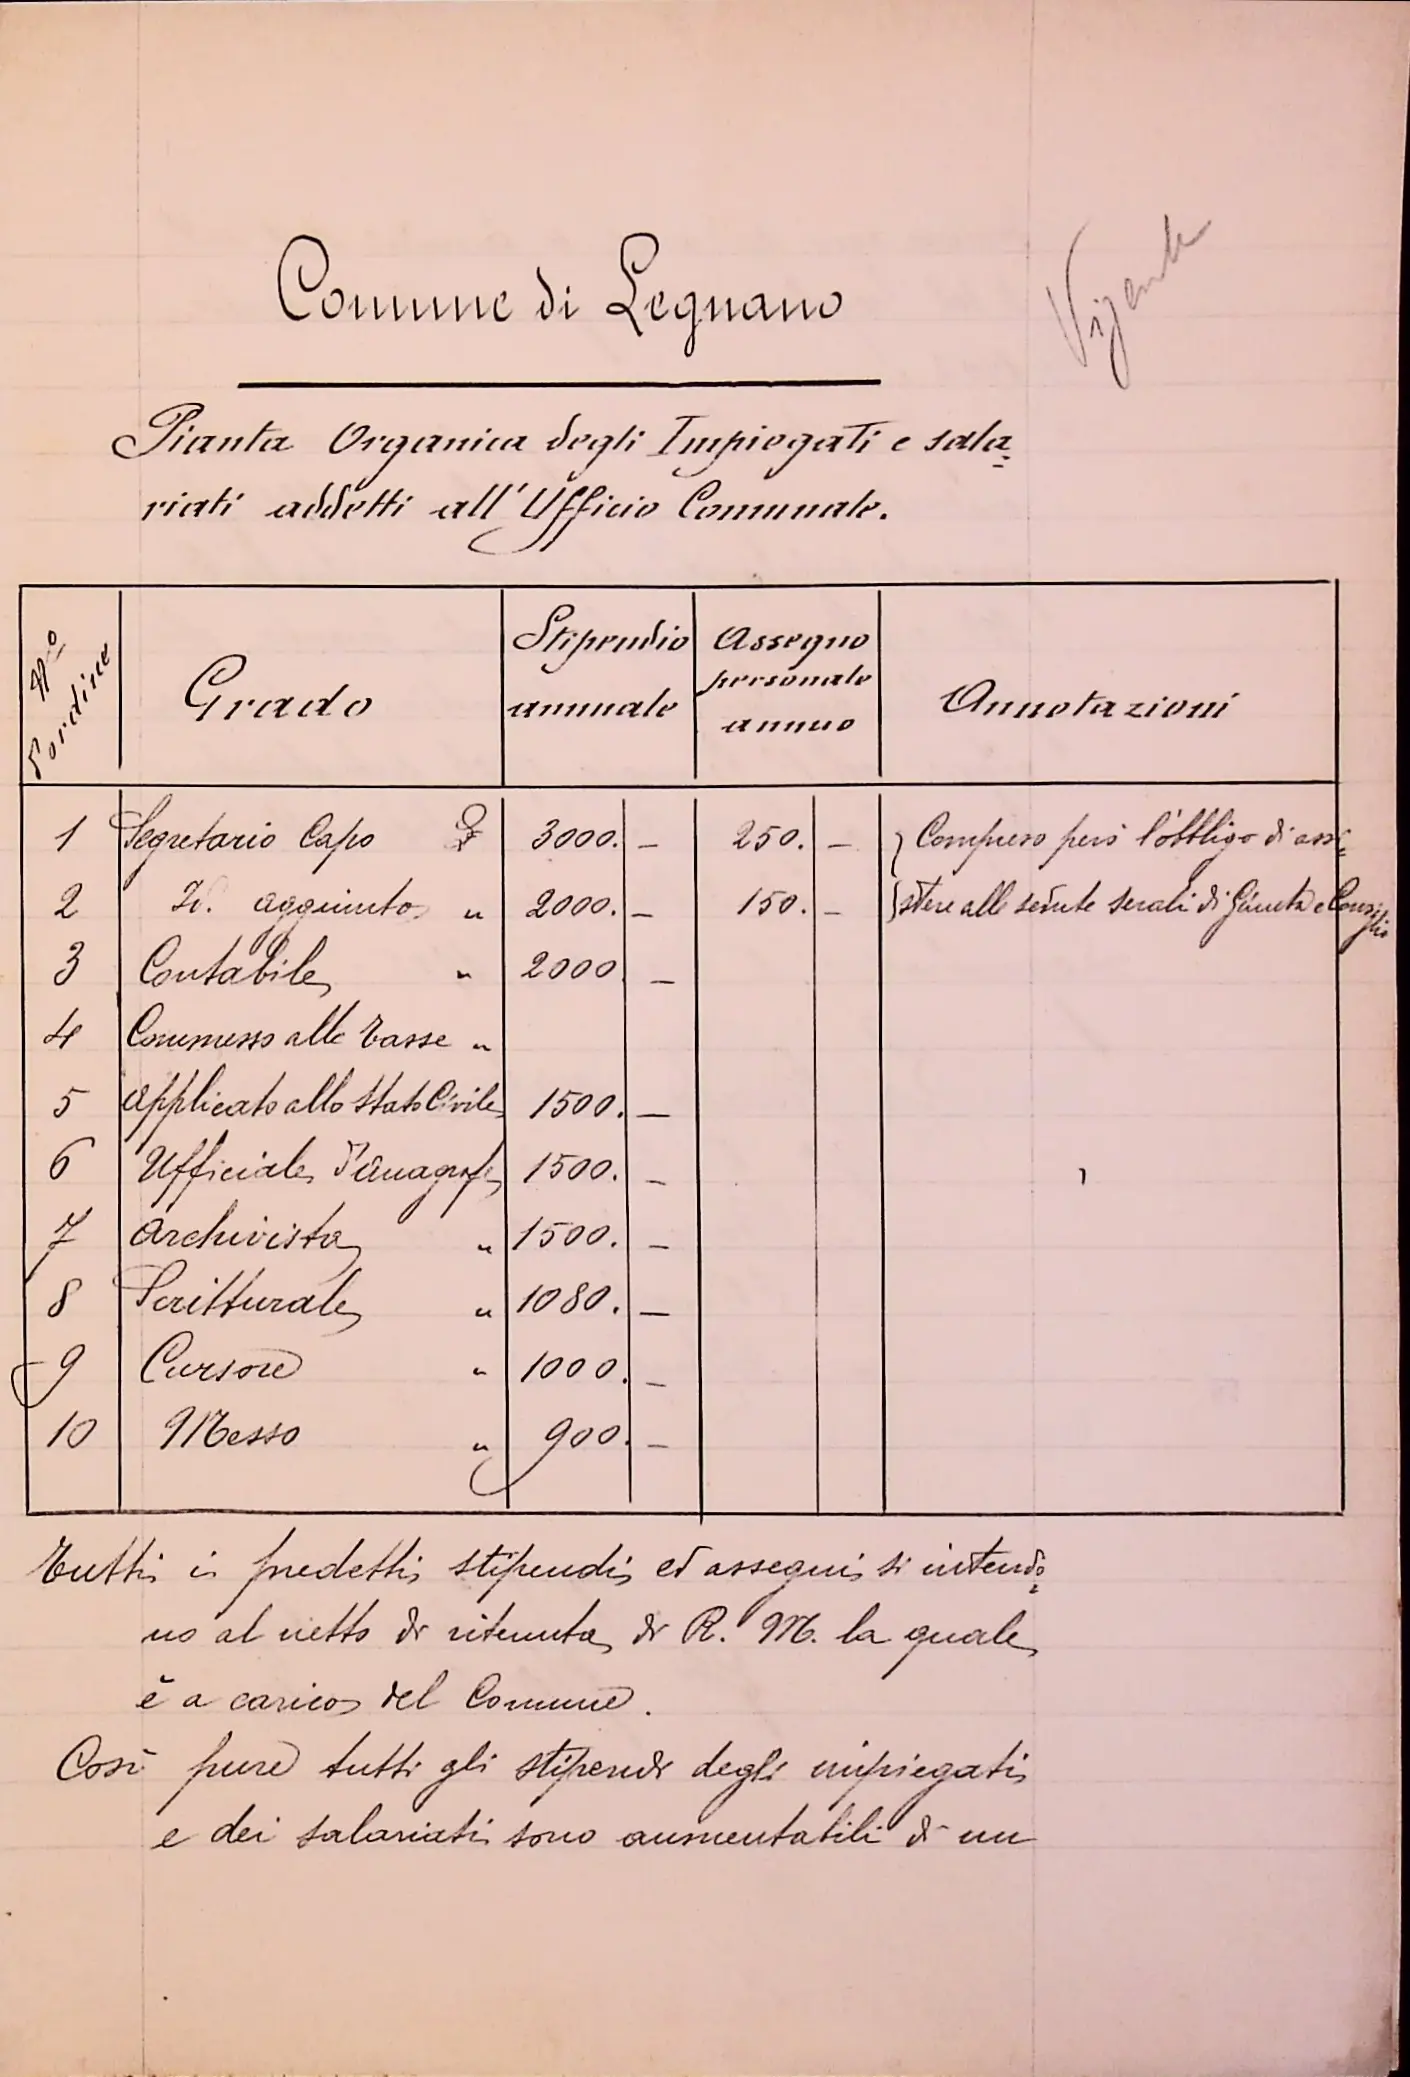 Vigente
Comune di Legnano
Pianta Organica degli Impiegati e sala=
riati addetti all'Ufficio Comunale.
N.o d'ordine | Grado | Stipendio annuale | Assegno personale annuo | Annotazioni
1 Segretario Capo £ 3000. — 250. — Compreso però l'obbligo di assi=
2 Id. aggiunto " 2000. — 150. — stere alle sedute serali di Giunta e Consiglio
3 Contabile " 2000. —
4 Commesso alle tasse "
5 Applicato allo Stato Civile 1500. —
6 Ufficiale d'Anagrafe 1500. —
7 Archivista " 1500. —
8 Scritturale " 1080. —
9 Cursore " 1000. —
10 Messo " 900. —
Tutti i predetti stipendi ed assegni si intendo=
no al netto di ritenuta di R. M. la quale
è a carico del Comune.
Così pure tutti gli stipendi degli impiegati
e dei salariati sono aumentabili di un